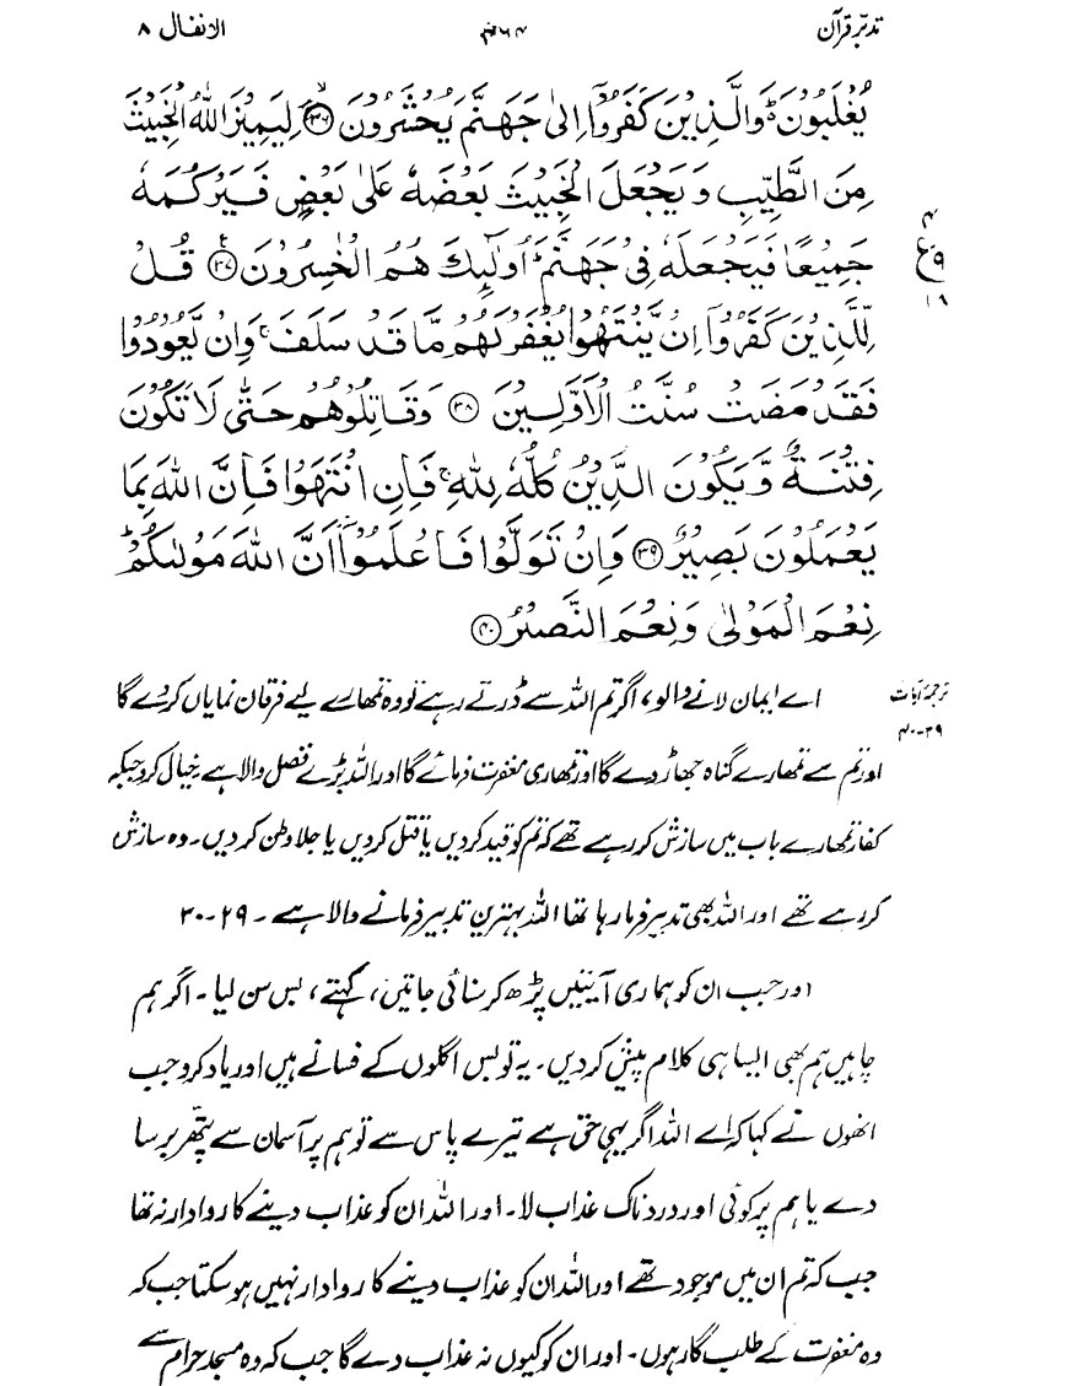 تدبّر قرآن ۴۶۴ الانفال ۸
يُغْلَبُوْنَ ؕ وَالَّذِيْنَ كَفَرُوْٓا اِلٰى جَهَنَّمَ يُحْشَرُوْنَ ﴿۳۶﴾ لِيَمِيْزَ اللّٰهُ الْخَبِيْثَ
مِنَ الطَّيِّبِ وَيَجْعَلَ الْخَبِيْثَ بَعْضَهٗ عَلٰى بَعْضٍ فَيَرْكُمَهٗ
جَمِيْعًا فَيَجْعَلَهٗ فِيْ جَهَنَّمَ ؕ اُولٰٓئِكَ هُمُ الْخٰسِرُوْنَ ﴿۳۷﴾ قُلْ
۴
ع ۹
۱۸
لِّلَّذِيْنَ كَفَرُوْٓا اِنْ يَّنْتَهُوْا يُغْفَرْ لَهُمْ مَّا قَدْ سَلَفَ ۚ وَاِنْ يَّعُوْدُوْا
فَقَدْ مَضَتْ سُنَّتُ الْاَوَّلِيْنَ ﴿۳۸﴾ وَقَاتِلُوْهُمْ حَتّٰى لَا تَكُوْنَ
فِتْنَةٌ وَّيَكُوْنَ الدِّيْنُ كُلُّهٗ لِلّٰهِ ۚ فَاِنِ انْتَهَوْا فَاِنَّ اللّٰهَ بِمَا
يَعْمَلُوْنَ بَصِيْرٌ ﴿۳۹﴾ وَاِنْ تَوَلَّوْا فَاعْلَمُوْٓا اَنَّ اللّٰهَ مَوْلٰىكُمْ ؕ
نِعْمَ الْمَوْلٰى وَنِعْمَ النَّصِيْرُ ﴿۴۰﴾
ترجمۂ آیات
۲۹-۴۰
اے ایمان لانے والو، اگر تم اللہ سے ڈرتے رہے تو وہ تمھارے لیے فرقان نمایاں کر دے گا
اور تم سے تمھارے گناہ جھاڑ دے گا اور تمھاری مغفرت فرمائے گا اور اللہ بڑے فضل والا ہے۔ خیال کرو جبکہ
کفار تمھارے باب میں سازش کر رہے تھے کہ تم کو قید کر دیں یا قتل کر دیں یا جلا وطن کر دیں۔ وہ سازش
کر رہے تھے اور اللہ بھی تدبیر فرما رہا تھا اللہ بہترین تدبیر فرمانے والا ہے۔ ۲۹-۳۰
اور جب ان کو ہماری آیتیں پڑھ کر سنائی جاتیں، کہتے، بس سن لیا۔ اگر ہم
چاہیں ہم بھی ایسا ہی کلام پیش کر دیں۔ یہ تو بس اگلوں کے فسانے ہیں اور یاد کرو جب
انھوں نے کہا کہ اے اللہ اگر یہی حق ہے تیرے پاس سے تو ہم پر آسمان سے پتھر برسا
دے یا ہم پر کوئی اور دردناک عذاب لا۔ اور اللہ ان کو عذاب دینے کا روادار نہ تھا
جب کہ تم ان میں موجود تھے اور اللہ ان کو عذاب دینے کا روادار نہیں ہو سکتا جب کہ
وہ مغفرت کے طلب گار ہوں۔ اور ان کو کیوں نہ عذاب دے گا جب کہ وہ مسجد حرام سے